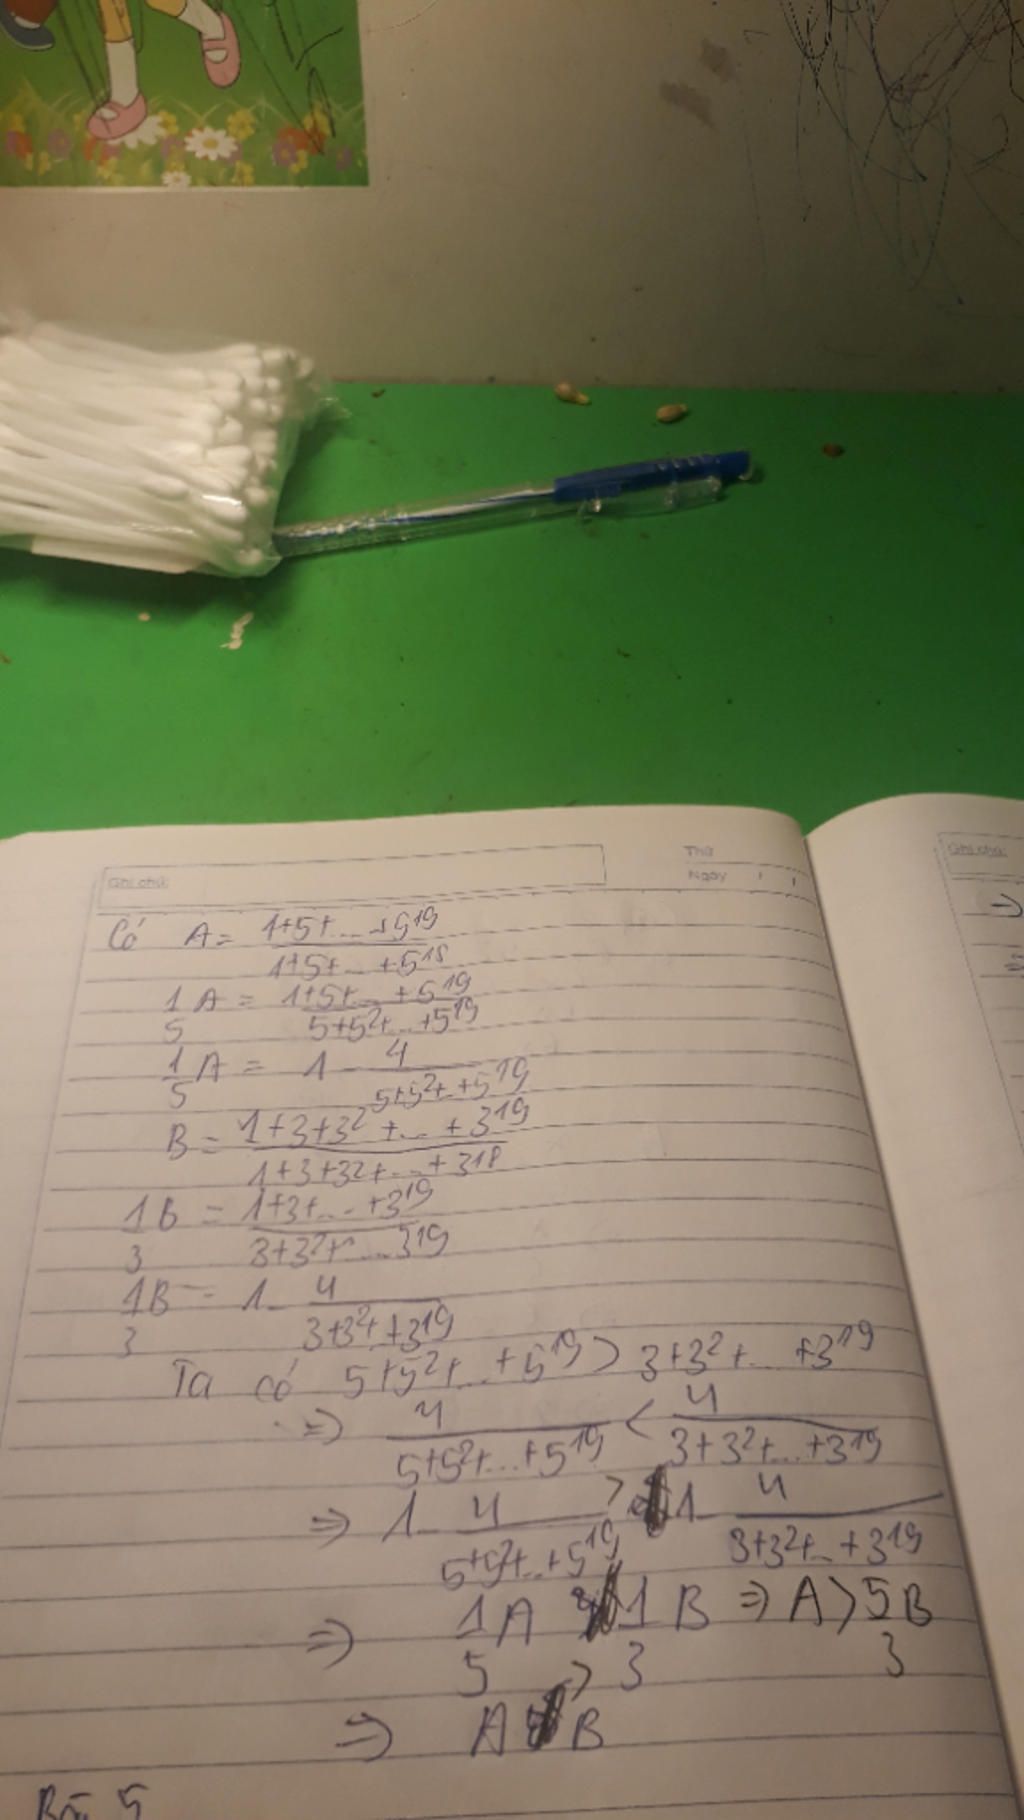 Ghi chú:
Thứ
Ngày / /
Ghi chú:
Có A = 1+5+...+5^19 / 1+5+...+5^18
1/5 A = 1+5+...+5^19 / 5+5^2+...+5^19
1/5 A = 1 - 4 / 5+5^2+..+5^19
B = 1+3+3^2+...+3^19 / 1+3+3^2+...+3^18
1/3 B = 1+3+...+3^19 / 3+3^2+...3^19
1/3 B = 1 - 4 / 3+3^2+.+3^19
Ta có 5+5^2+...+5^19 > 3+3^2+...+3^19
=> 4 / 5+5^2+...+5^19 < 4 / 3+3^2+...+3^19
=> 1 - 4 / 5+5^2+..+5^19 > 1 - 4 / 3+3^2+..+3^19
=> 1/5 A > 1/3 B => A > 5/3 B
=> A B
Bài 5